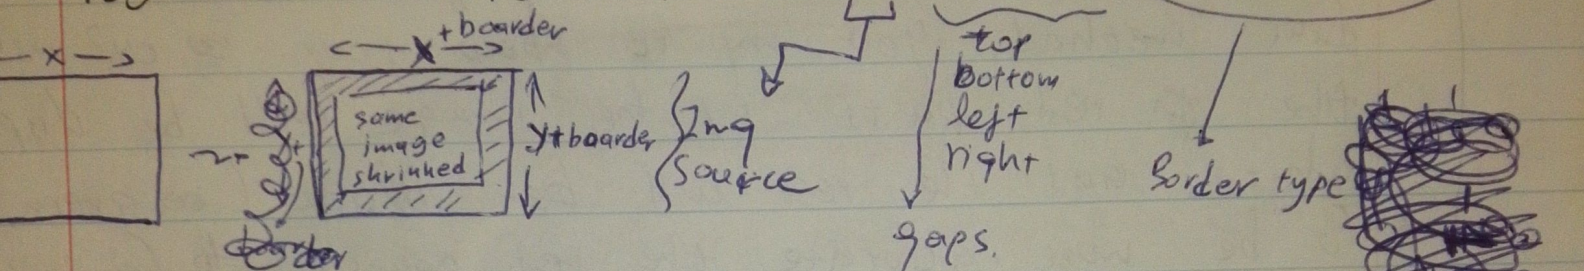 x
x +boarder
same
image
shrinked
y+boarder
Img
Source
top
bottom
left
right
gaps.
Border type